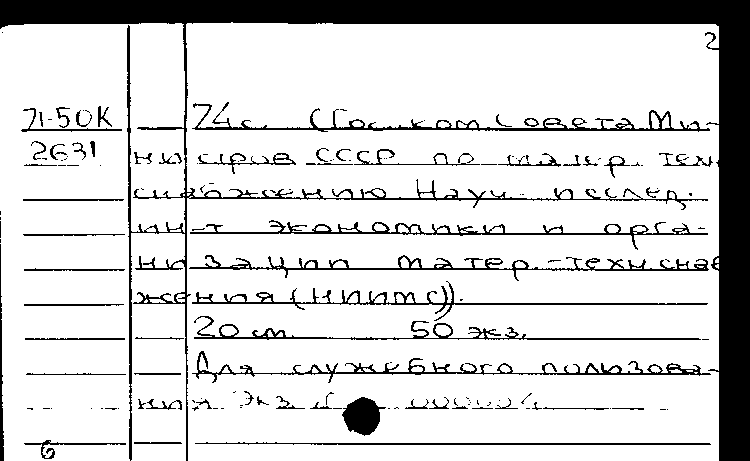 2
71-50К 74 с. (Гос. ком. Совета Ми-
2631 нистров СССР по матер. техн.
снабжению Науч. исслед.
ин-т экономики и орга-
низации матер.-техн. снаб
жения (НИИМС)).
20 см. 50 экз.
Для служебного пользова-
ния Экз. 000004
6